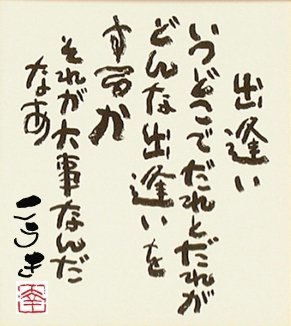 出逢い
いつどこでだれとだれが
どんな出逢いを
するか
それが大事なんだ
なあ
こうき
幸